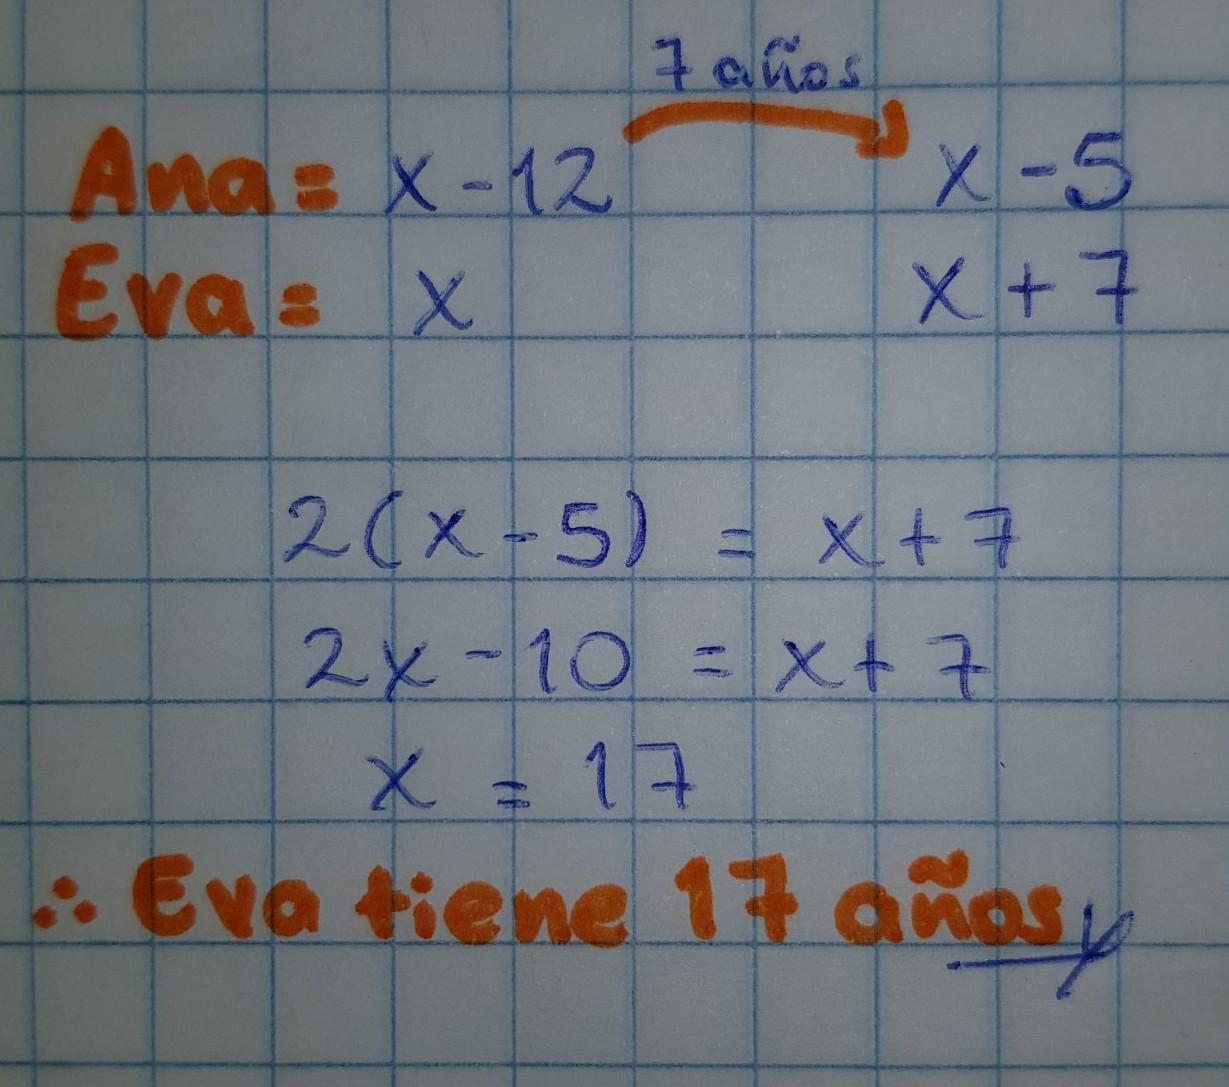 7 años
Ana= x - 12 x - 5
Eva= x x + 7
2(x - 5) = x + 7
2x - 10 = x + 7
x = 17
∴ Eva tiene 17 años